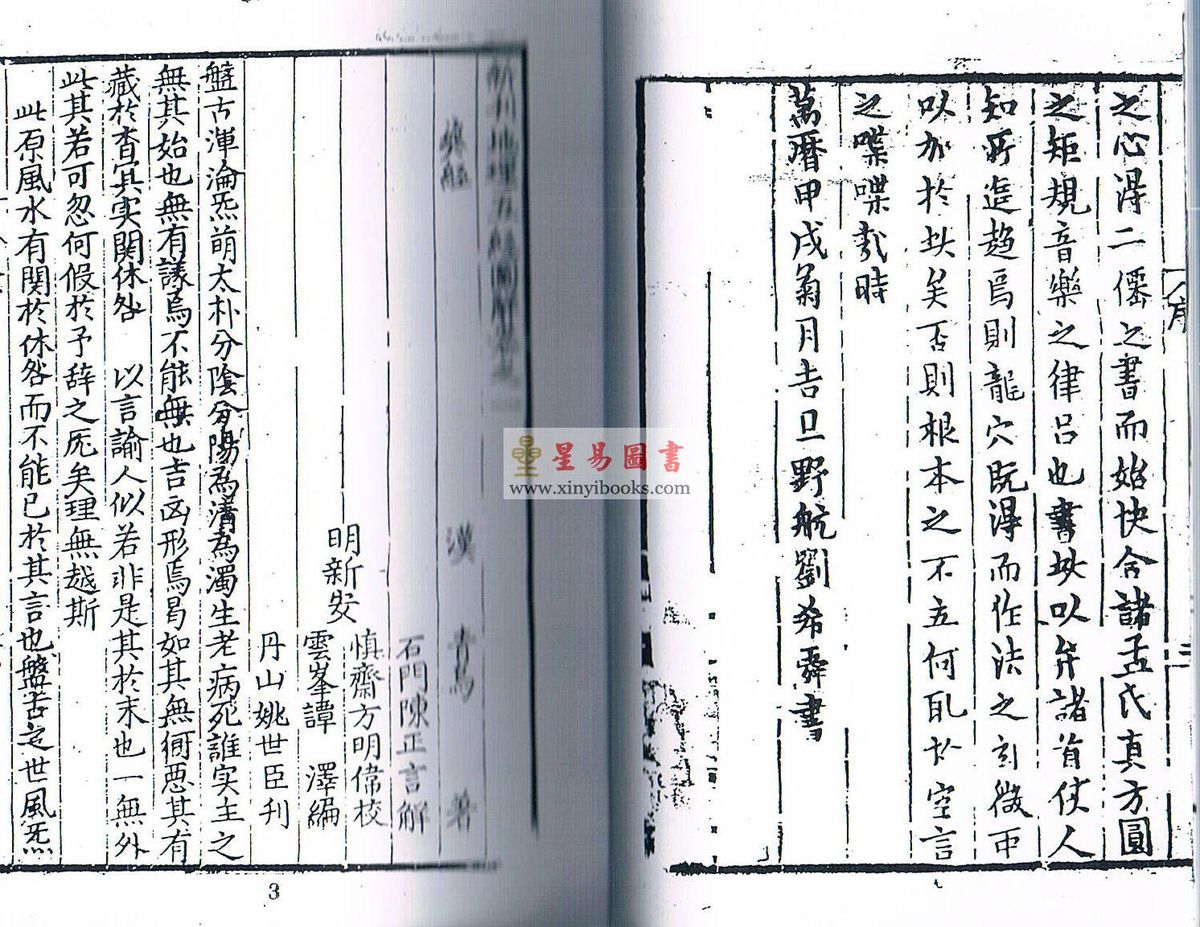 之心得二僊之書而始快合諸孟氏真方圓
之矩規音樂之律呂也書此以弁諸首使人
知所造趨焉則龍穴既得而作法之玄微
以加於此矣否則根本之不立何取於空言
之喋喋哉時
萬曆甲戌菊月吉旦野航劉希舜書
八序
三
地理五經圖解
漢 青烏 著
石門陳正言解
明新安 慎齋方明偉校
雲峯譚 澤編
丹山姚世臣刊
盤古渾淪炁萌太朴分陰分陽為清為濁生老病死誰實主之
無其始也無有議焉不能無也吉凶形焉曷如其無何惡其有
藏於杳冥實関休咎 以言諭人似若非是其於末也一無外
此其若可忽何假於予辞之厖矣理無越斯
此原風水有関於休咎而不能已於其言也盤古之世風炁
3
星易圖書
www.xinyibooks.com